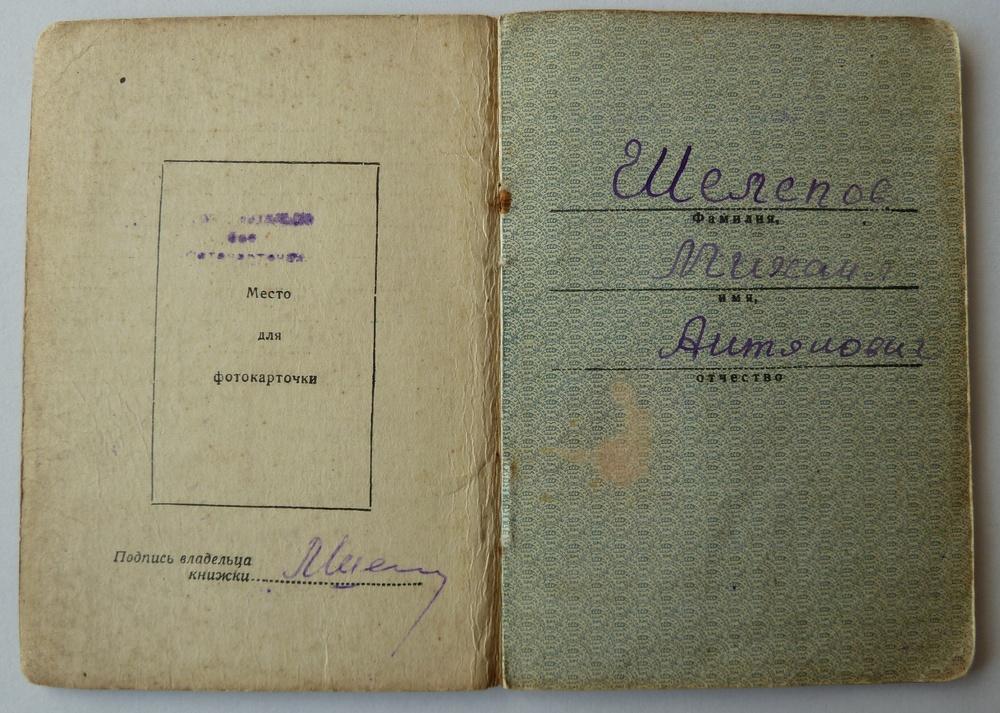 без
фотокарточки
Место
для
фотокарточки
Подпись владельца
книжки
Шелепов
Фамилия,
Михаил
имя,
Антянович
отчество